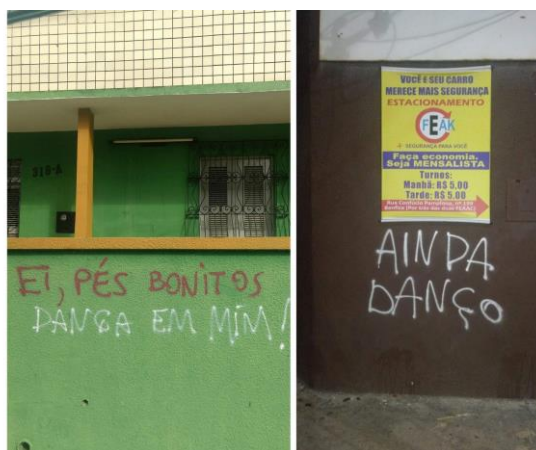 318-A
EI, PÉS BONITOS
DANÇA EM MIM!
VOCÊ E SEU CARRO
MERECE MAIS SEGURANÇA
ESTACIONAMENTO
FEAK
SEGURANÇA PARA VOCÊ
Faça economia.
Seja MENSALISTA
Turnos:
Manhã: R$ 5,00
Tarde: R$ 5,00
AINDA
DANÇO